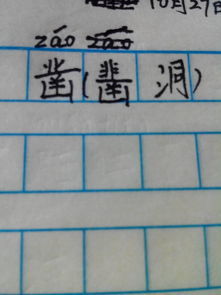 10月27
záo
凿(凿洞)